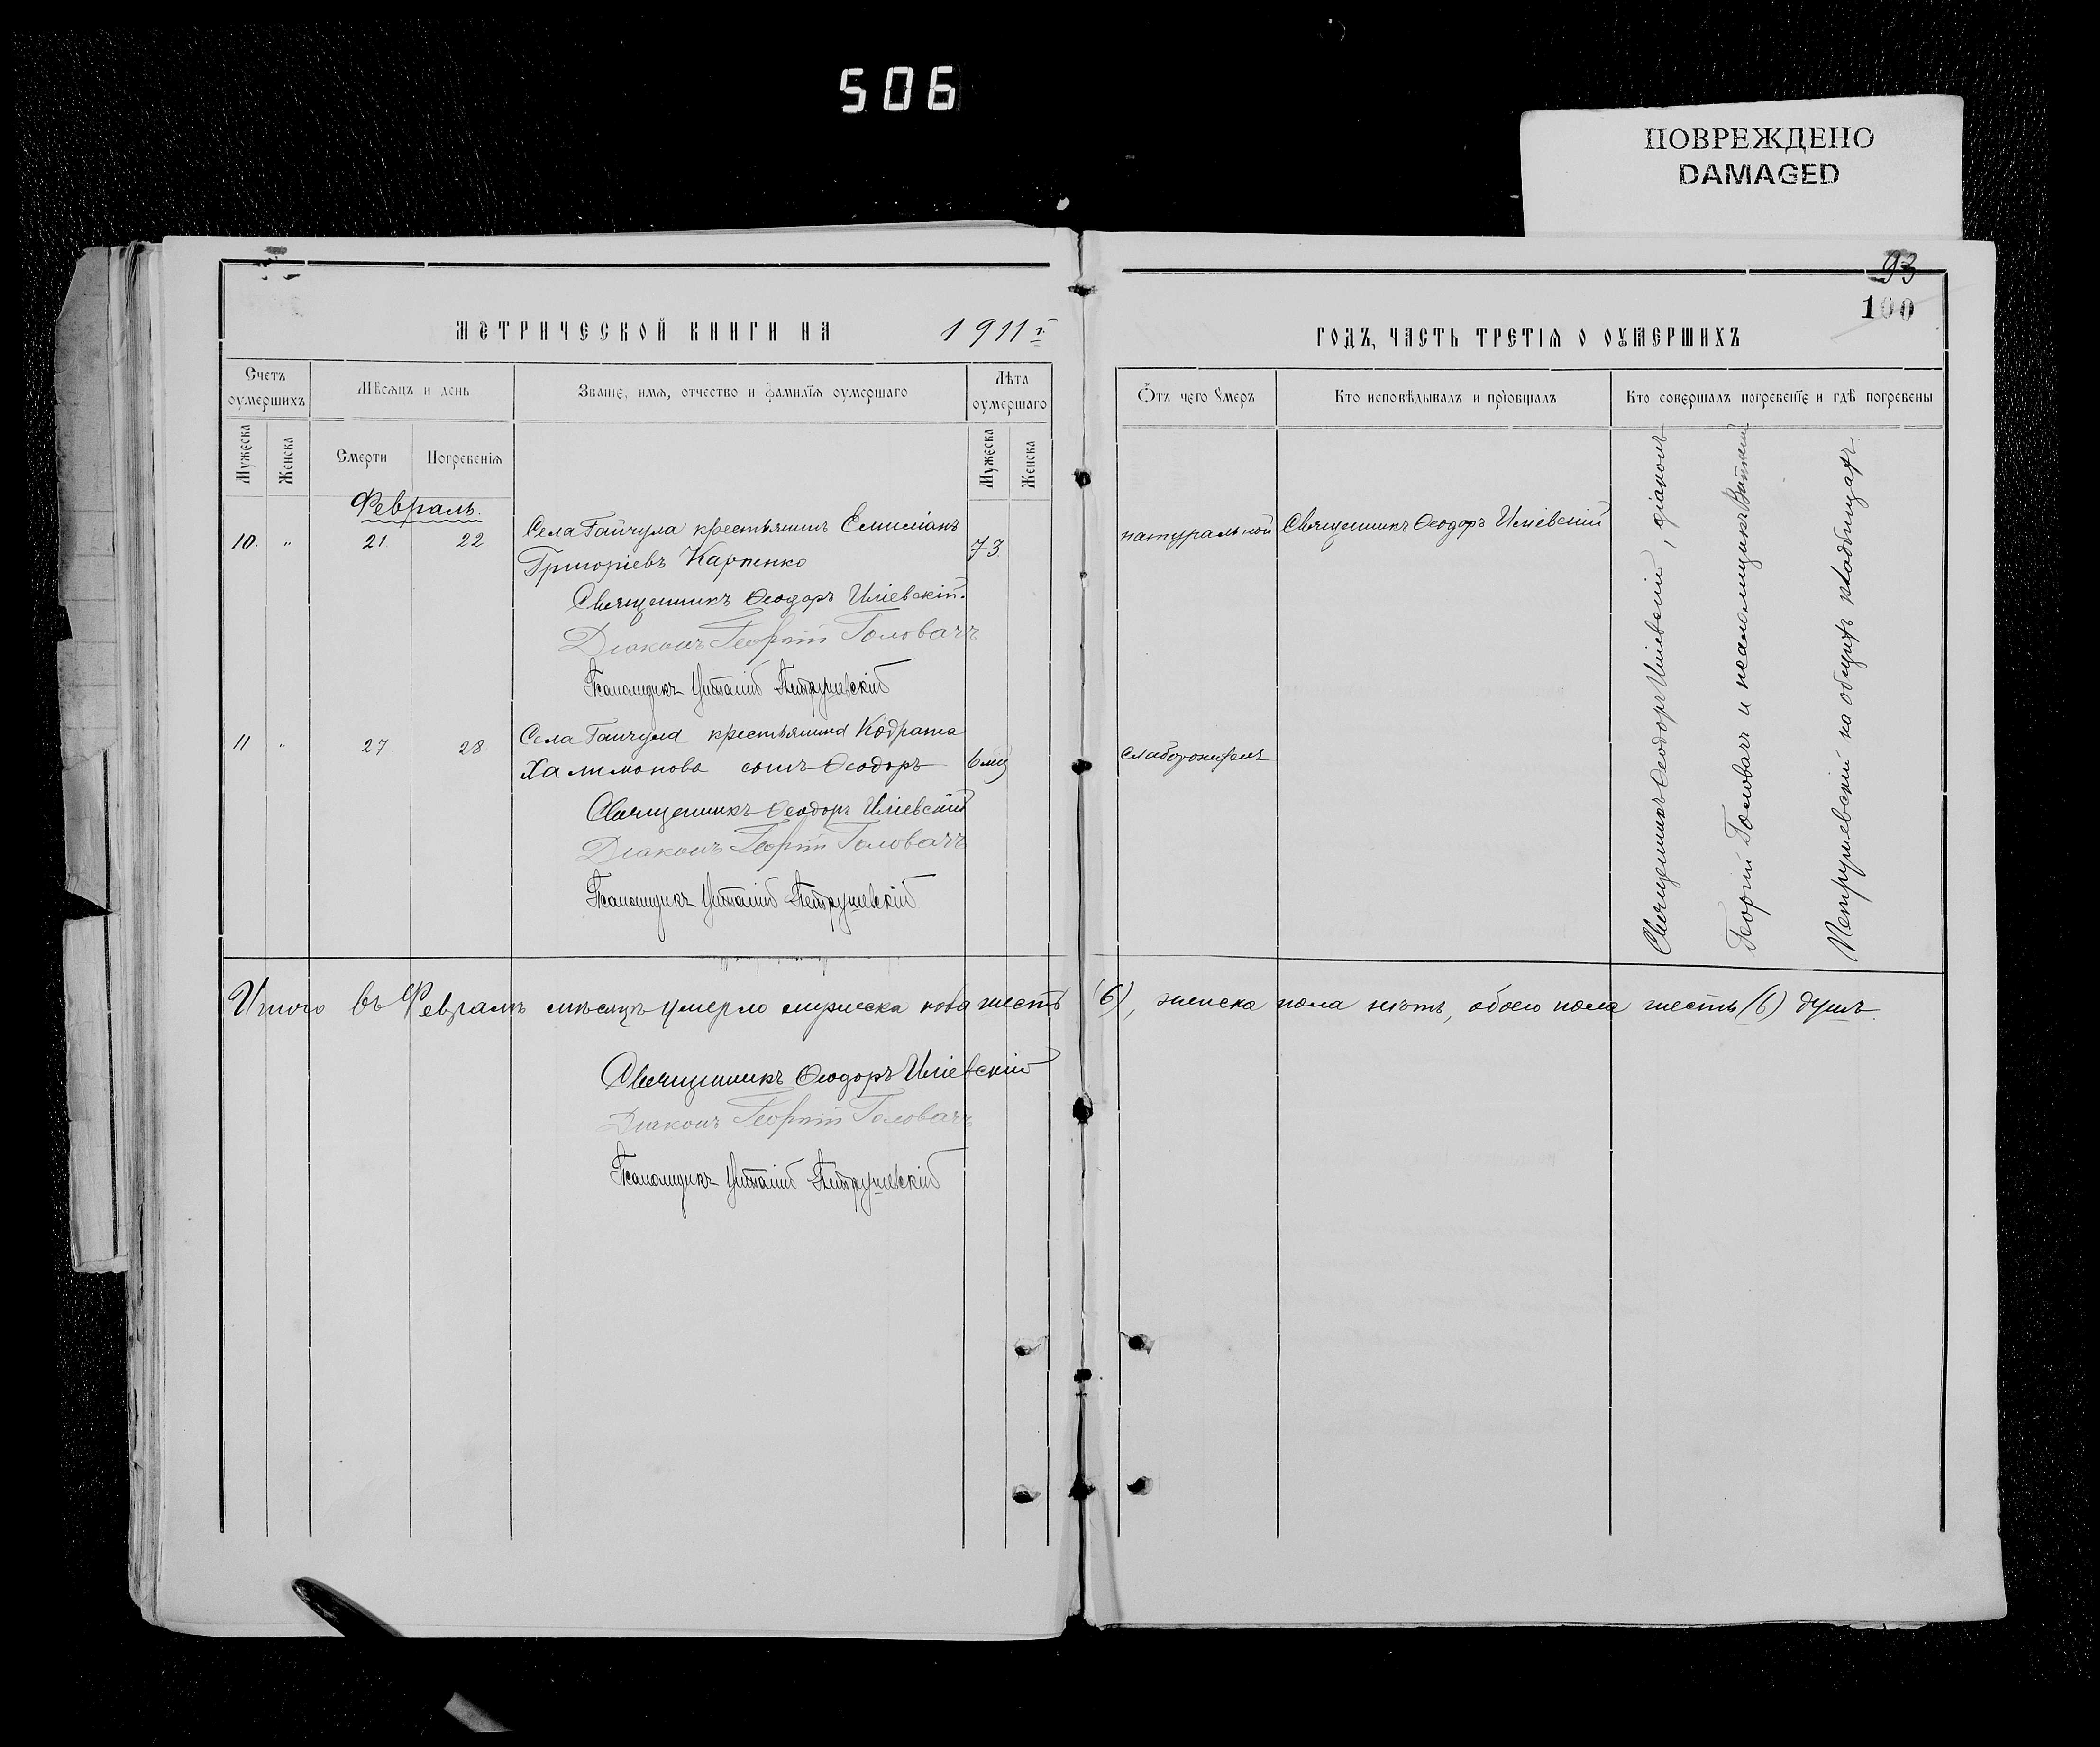 506
ПОВРЕЖДЕНО
DAMAGED
93
100
МЕТРИЧЕСКОЙ КНИГИ НА 1911 г.
ГОДЪ, ЧАСТЬ ТРЕТІЯ О ОУМЕРШИХЪ
Счетъ оумершихъ
Мѣсяцъ и день
Званіе, имя, отчество и фамилія оумершаго
Лѣта оумершаго
Отъ чего оумеръ
Кто исповѣдывалъ и пріобщалъ
Кто совершалъ погребеніе и гдѣ погребены
Мужеска
Женска
Смерти
Погребенія
Мужеска
Женска
Февраль.
10. " 21 22 Села Гайчула крестьянинъ Емиліанъ
Григоріевъ Карпенко 73 натуральной Священникъ Ѳеодоръ Иліевскій
Священникъ Ѳеодоръ Иліевскій.
Діаконъ Георгій Головачъ
Псаломщикъ Виталій Петрушевскій
11 " 27 28 Села Гайчула крестьянина Кодрата
Халимонова сынъ Ѳеодоръ 6 мц слаборожден
Священникъ Ѳеодоръ Иліевскій
Діаконъ Георгій Головачъ
Псаломщикъ Виталій Петрушевскій
Священникъ Ѳеодоръ Иліевскій, діаконъ
Георгій Головачъ и псаломщикъ Виталій
Петрушевскій на общемъ кладбищѣ
Итого въ Февралѣ мѣсяцѣ умерло мужеска пола шесть (6), женска пола нѣтъ, обоего пола шесть (6) душъ.
Священникъ Ѳеодоръ Иліевскій
Діаконъ Георгій Головачъ
Псаломщикъ Виталій Петрушевскій